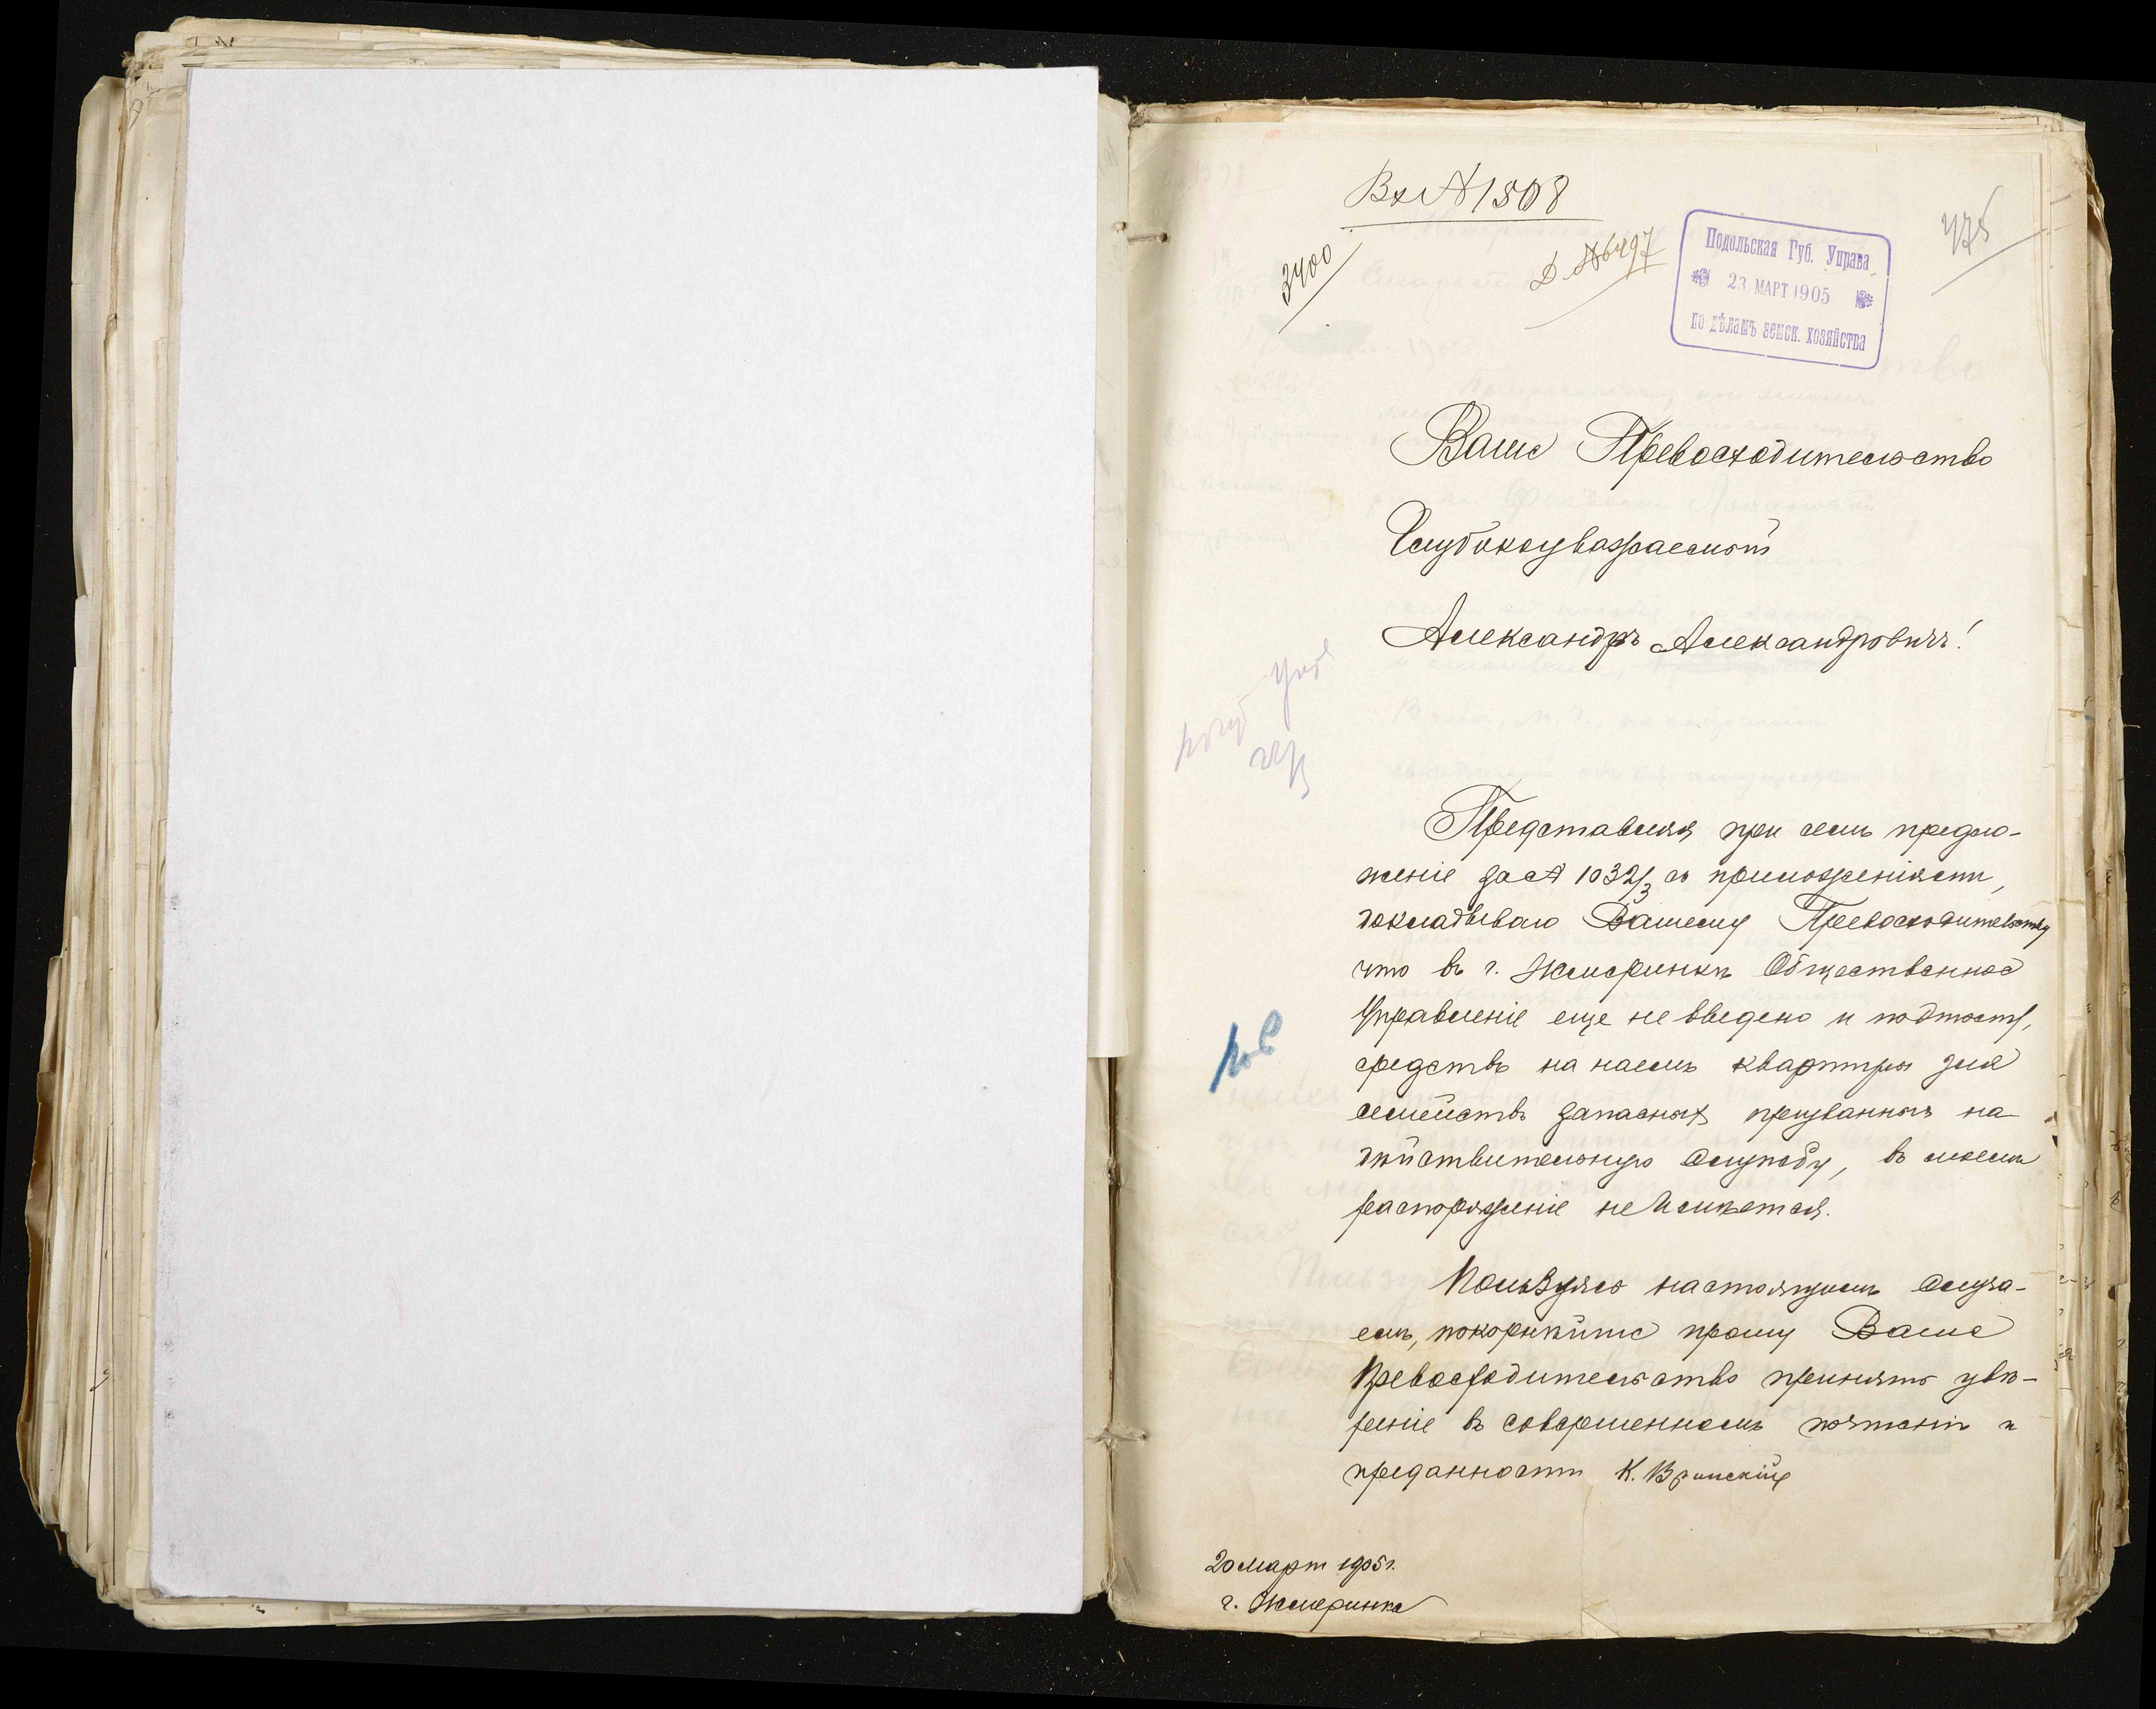 Вх № 1508
3400
Д. № 6497
475
Подольская Губ. Управа
23 МАРТ 1905
по дѣламъ земск. хозяйства
Ваше Превосходительство
Глубокоуважаемый
Александръ Александровичъ!
Представляя при семъ предло-
женіе за № 1032/3 съ приложеніями,
докладываю Вашему Превосходительству
что въ г. Жмеринкѣ Общественное
Управленіе еще не введено и
средствъ на наемъ квартиры для
семействъ запасныхъ призванныхъ на
дѣйствительную службу, въ моемъ
распоряженіе не имѣется.
Пользуясь настоящимъ случа-
емъ, покорнѣйше прошу Ваше
Превосходительство принять увѣ-
реніе въ совершенномъ почтеніи и
преданности К.
20 Март 1905 г.
г. Жмеринка